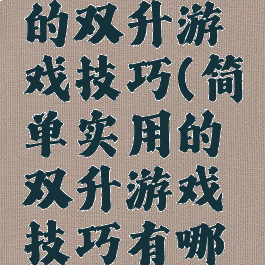 的双升游
戏技巧(简
单实用的
双升游戏
技巧有哪